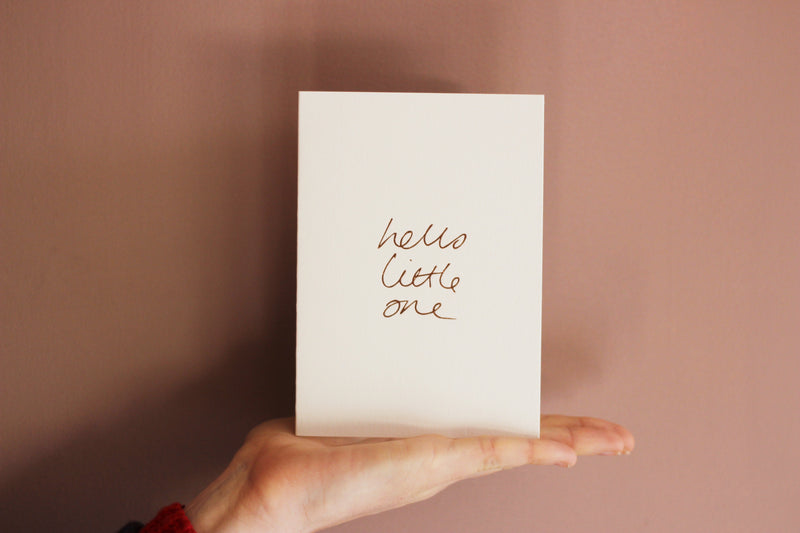 hello
little
one